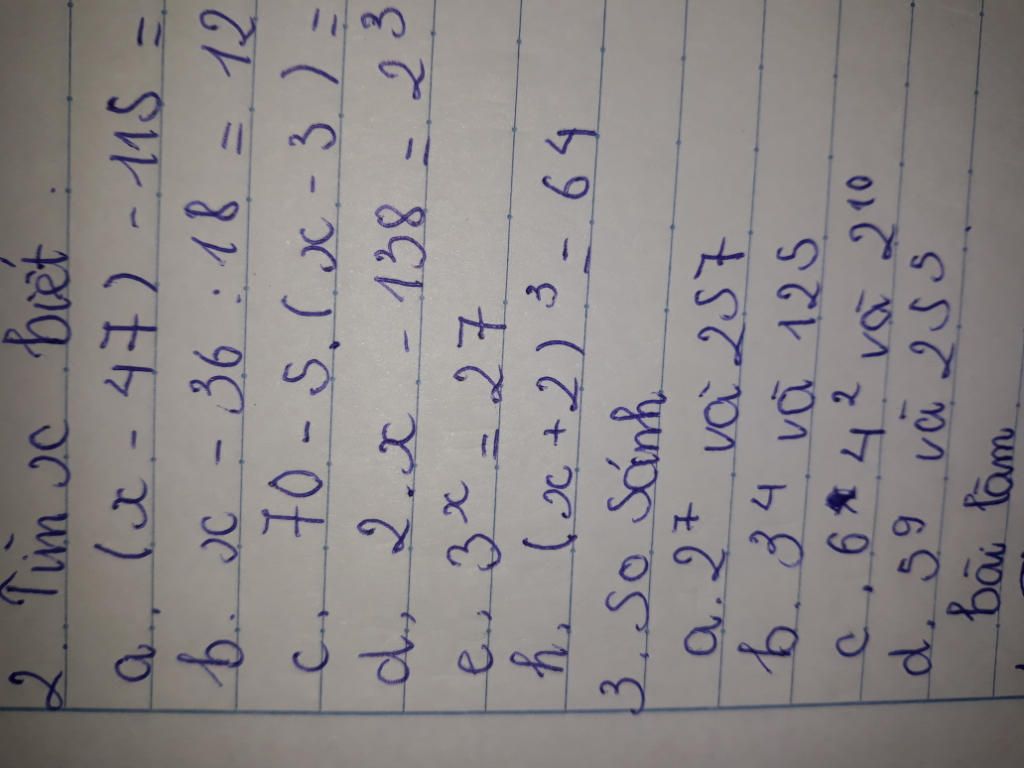 2. Tìm x biết.
a, (x - 47) - 115 =
b. x - 36 : 18 = 12
c, 70 - 5.(x - 3) =
d, 2.x - 138 = 2 3
e, 3^x = 27
h, (x + 2)^3 = 64
3. So Sánh
a. 2^7 và 257
b. 3^4 và 125
c. 6 4^2 và 2^10
d. 5^9 và 255.
bài làm